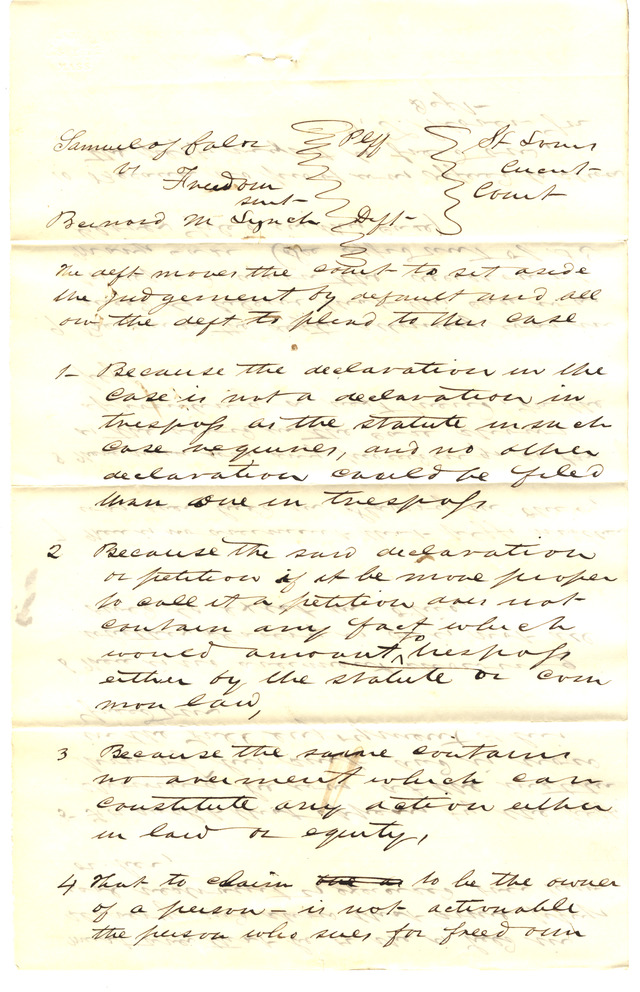 Samuel of Color Plff St Louis
vs Circuit
Freedom Court
suit
Bernard M Lynch Deft
The deft moves the court to set aside
the judgement by default and all
ow the deft to plead to this case
1- Because the declaration in the
case is not a declaration in
trespass as the statute in such
case requires, and no other
declaration could be filed
than one in trespass
2 Because the said declaration
or petition if it be more proper
to call it a petition does not
contain any fact which
would amount to trespass
either by the statute or com
mon law,
3 Because the same contains
no averment which can
constitute any action either
in law or equity,
4 That to claim to be the owner
of a person - is not actionable
the person who sues for freedom